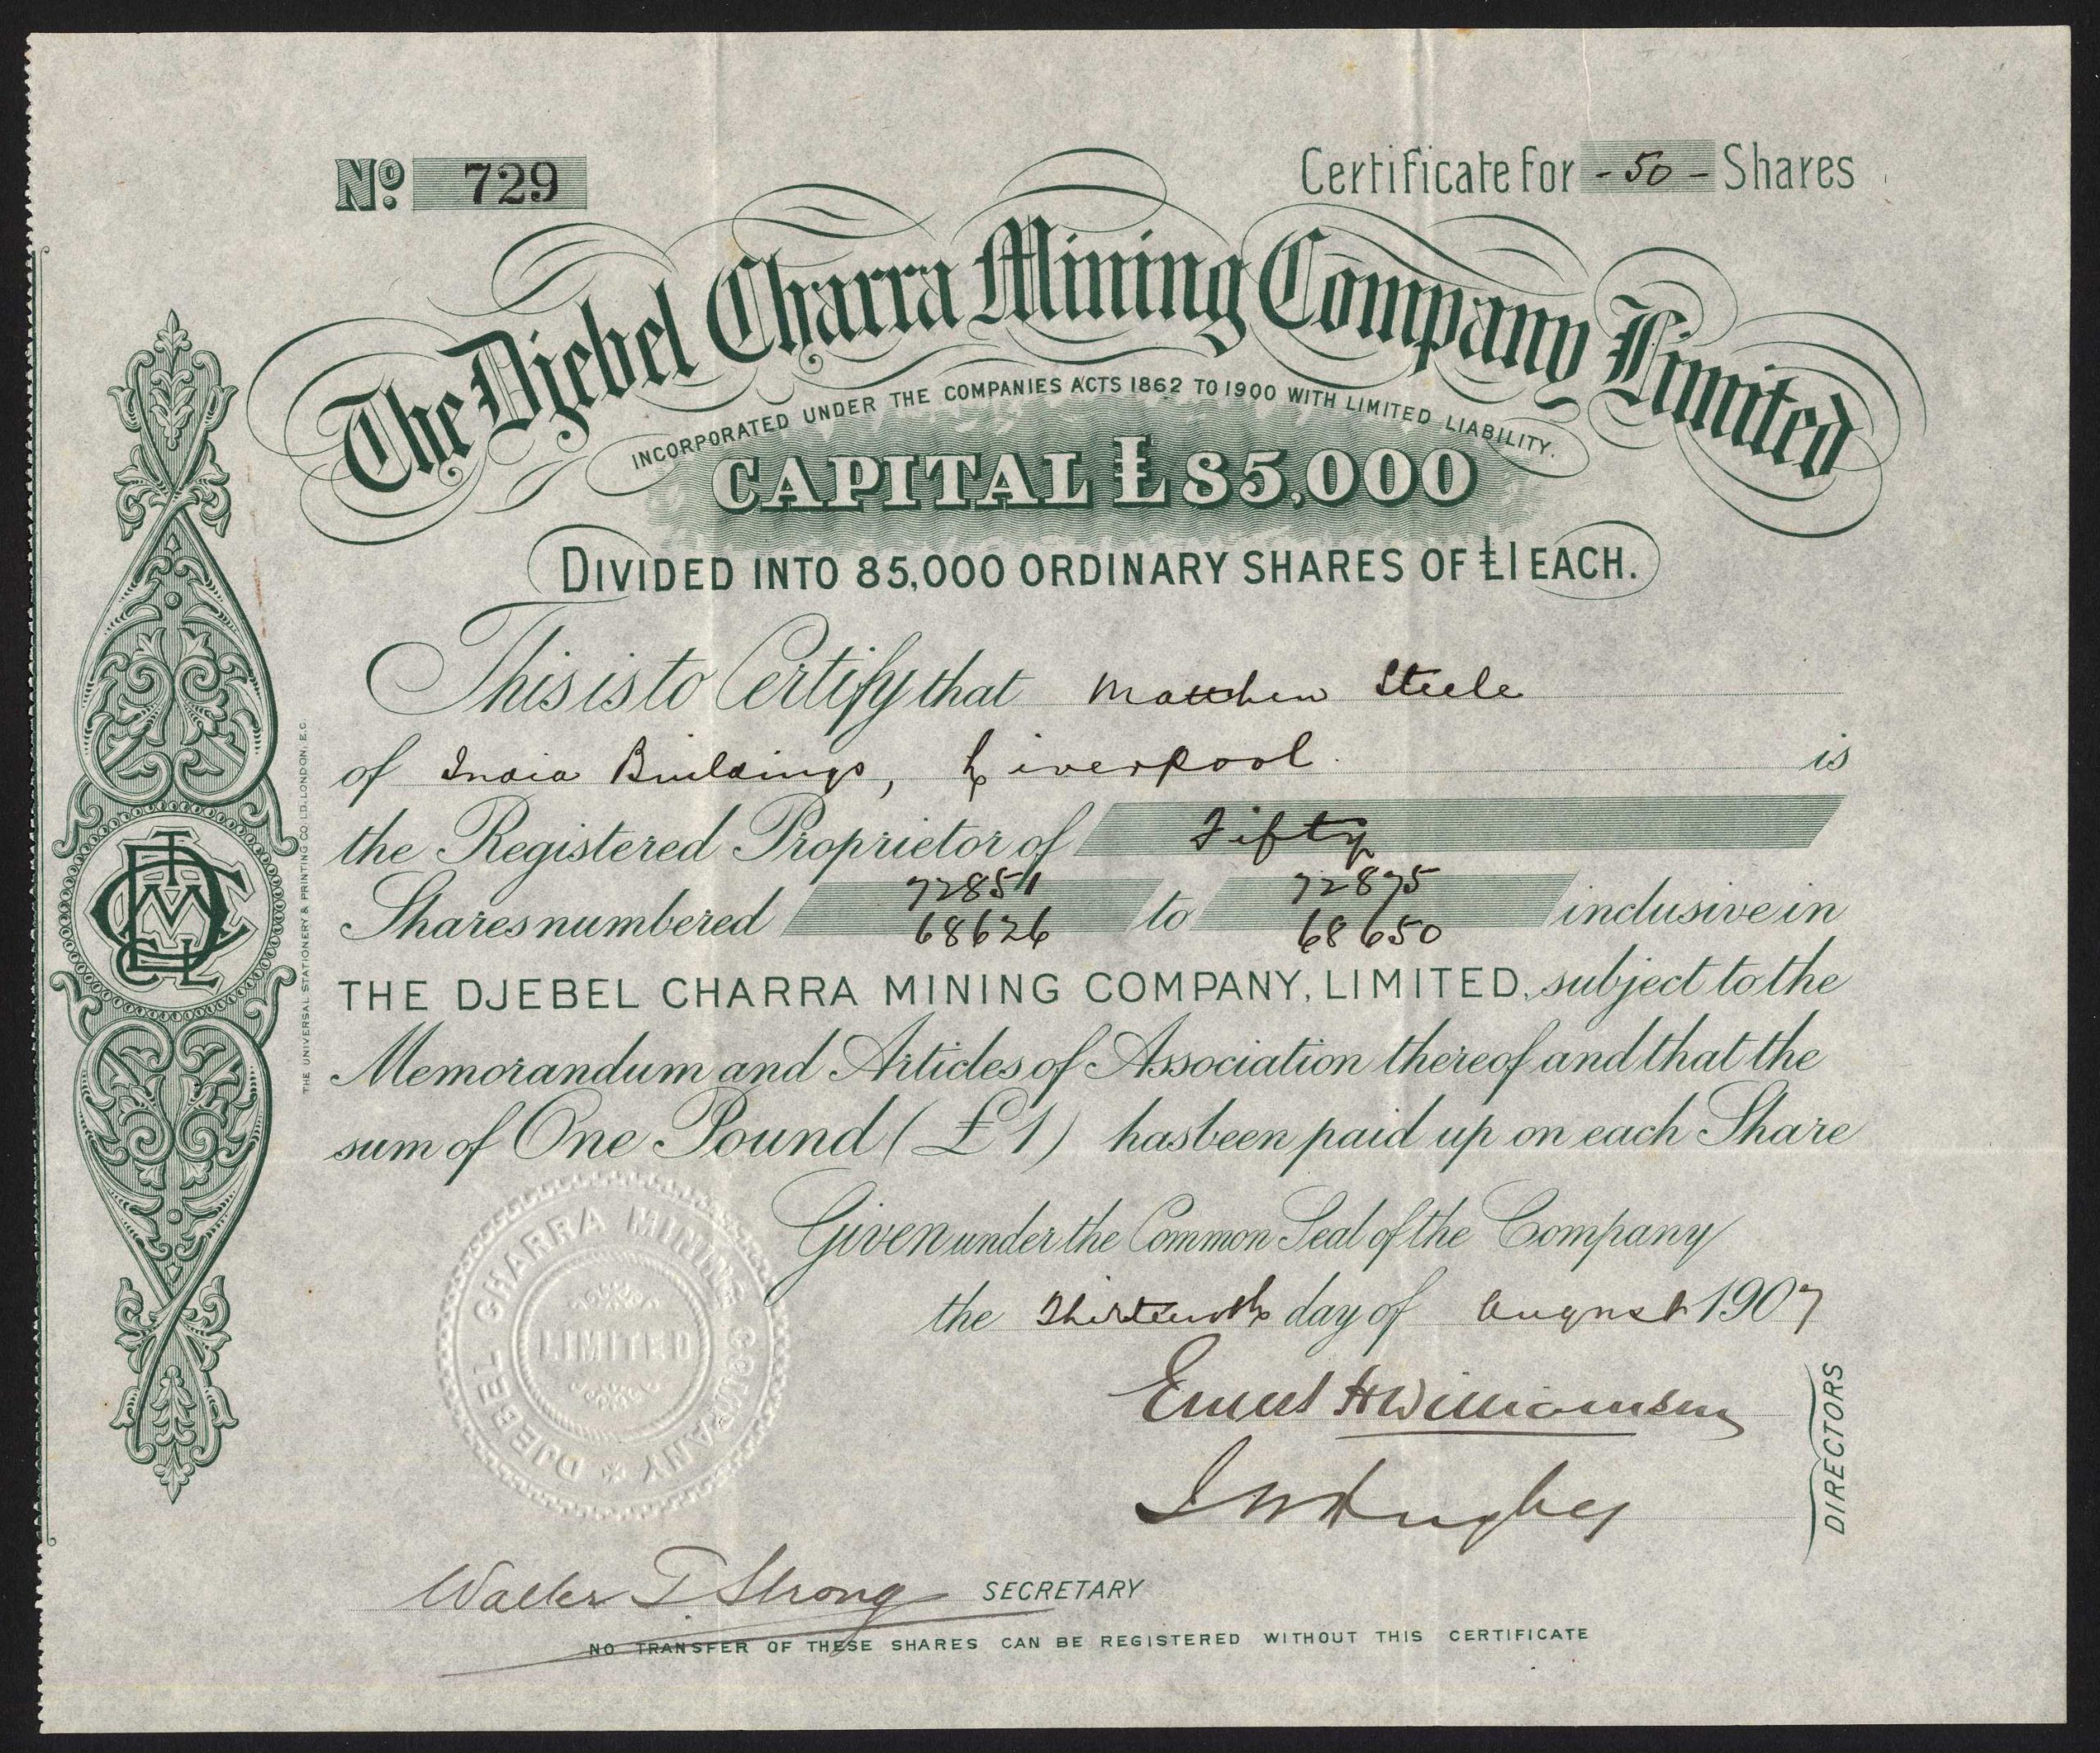 No. 729
Certificate for - 50 - Shares
The Djebel Charra Mining Company Limited
INCORPORATED UNDER THE COMPANIES ACTS 1862 TO 1900 WITH LIMITED LIABILITY.
CAPITAL £85,000
DIVIDED INTO 85,000 ORDINARY SHARES OF £1 EACH.
This is to Certify that Matthew Steele
of India Buildings, Liverpool. is
the Registered Proprietor of Fifty
72851 72875
Shares numbered 68626 to 68650 inclusive in
THE DJEBEL CHARRA MINING COMPANY, LIMITED, subject to the
Memorandum and Articles of Association thereof and that the
sum of One Pound (£1) has been paid up on each Share
Given under the Common Seal of the Company
the Thirteenth day of August 1907
Ernest H Williamson
Hughes
DIRECTORS
Walter T. Strong SECRETARY
NO TRANSFER OF THESE SHARES CAN BE REGISTERED WITHOUT THIS CERTIFICATE
DJEBEL CHARRA MINING COMPANY
LIMITED
THE UNIVERSAL STATIONERY & PRINTING CO LTD. LONDON, E.C.